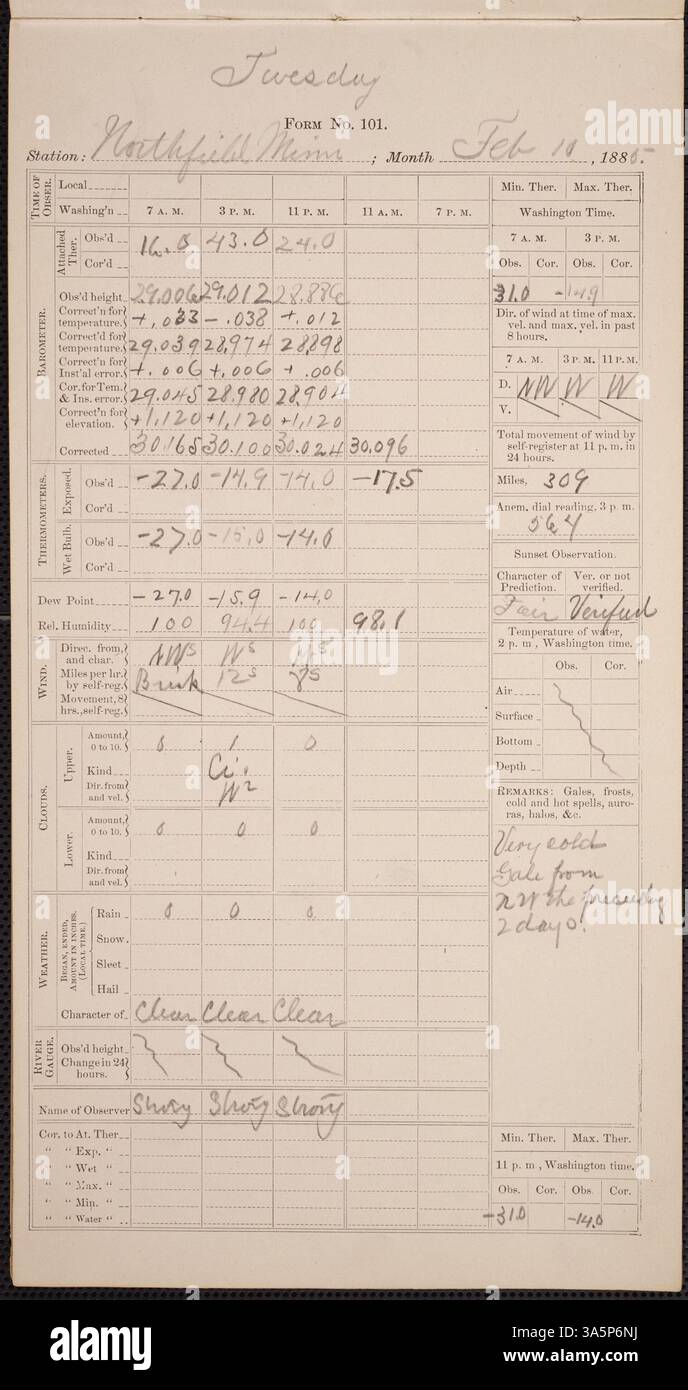 Tuesday
FORM NO. 101.
Station: Northfield Minn ; Month Feb 10, 1885.
TIME OF OBSER. Local
Washing'n 7 A. M. 3 P. M. 11 P. M. 11 A. M. 7 P. M.
BAROMETER.
Attached Ther. Obs'd 16.0 43.0 24.0
Cor'd
Obs'd height 29.006 29.012 28.886
Correct'n for temperature. +.033 -.038 +.012
Correct'd for temperature. 29.039 28.974 28.898
Correct'n for Inst'al error. +.006 +.006 +.006
Cor. for Tem. & Ins. error. 29.045 28.980 28.904
Correct'n for elevation. +1,120 +1,120 +1,120
Corrected 30.165 30.100 30.024 30.096
THERMOMETERS.
Exposed. Obs'd -27.0 -14.9 -14.0 -17.5
Cor'd
Wet Bulb. Obs'd -27.0 -15.0 -14.0
Cor'd
Dew Point -27.0 -15.9 -14.0
Rel. Humidity 100 94.4 100 98.1
WIND.
Direc. from, and char. NW S W S
Miles per hr. by self-reg. Brisk 12 S 8 S
Movement, 8 hrs., self-reg.
CLOUDS.
Upper. Amount, 0 to 10. 0 1 0
Kind Ci.
Dir. from and vel. W 2
Lower. Amount, 0 to 10. 0 0 0
Kind
Dir. from and vel.
WEATHER.
BEGAN, ENDED, AMOUNT IN INCHES. (LOCAL TIME.)
Rain 0 0 0
Snow.
Sleet
Hail
Character of Clear Clear Clear
RIVER GAUGE.
Obs'd height
Change in 24 hours.
Name of Observer
Cor. to At. Ther
" " Exp. "
" " Wet "
" " Max. "
" " Min. "
" " Water "
Min. Ther. Max. Ther.
Washington Time.
7 A. M. 3 P. M.
Obs. Cor. Obs. Cor.
31.0 -14.9
Dir. of wind at time of max. vel. and max. vel. in past 8 hours.
7 A. M. 3 P. M. 11 P. M.
D. NW W W
V.
Total movement of wind by self-register at 11 p. m. in 24 hours.
Miles, 309
Anem. dial reading, 3 p. m.
564
Sunset Observation.
Character of Prediction. Ver. or not verified.
Fair Verified
Temperature of water, 2 p. m, Washington time.
Obs. Cor.
Air
Surface
Bottom
Depth
REMARKS: Gales, frosts, cold and hot spells, auroras, halos, &c.
Very cold
Gale from
NW the preceding
2 days.
Min. Ther. Max. Ther.
11 p. m, Washington time.
Obs. Cor. Obs. Cor.
-31.0 -14.0
alamy
alamy
Image ID: 3A5P6NJ
www.alamy.com